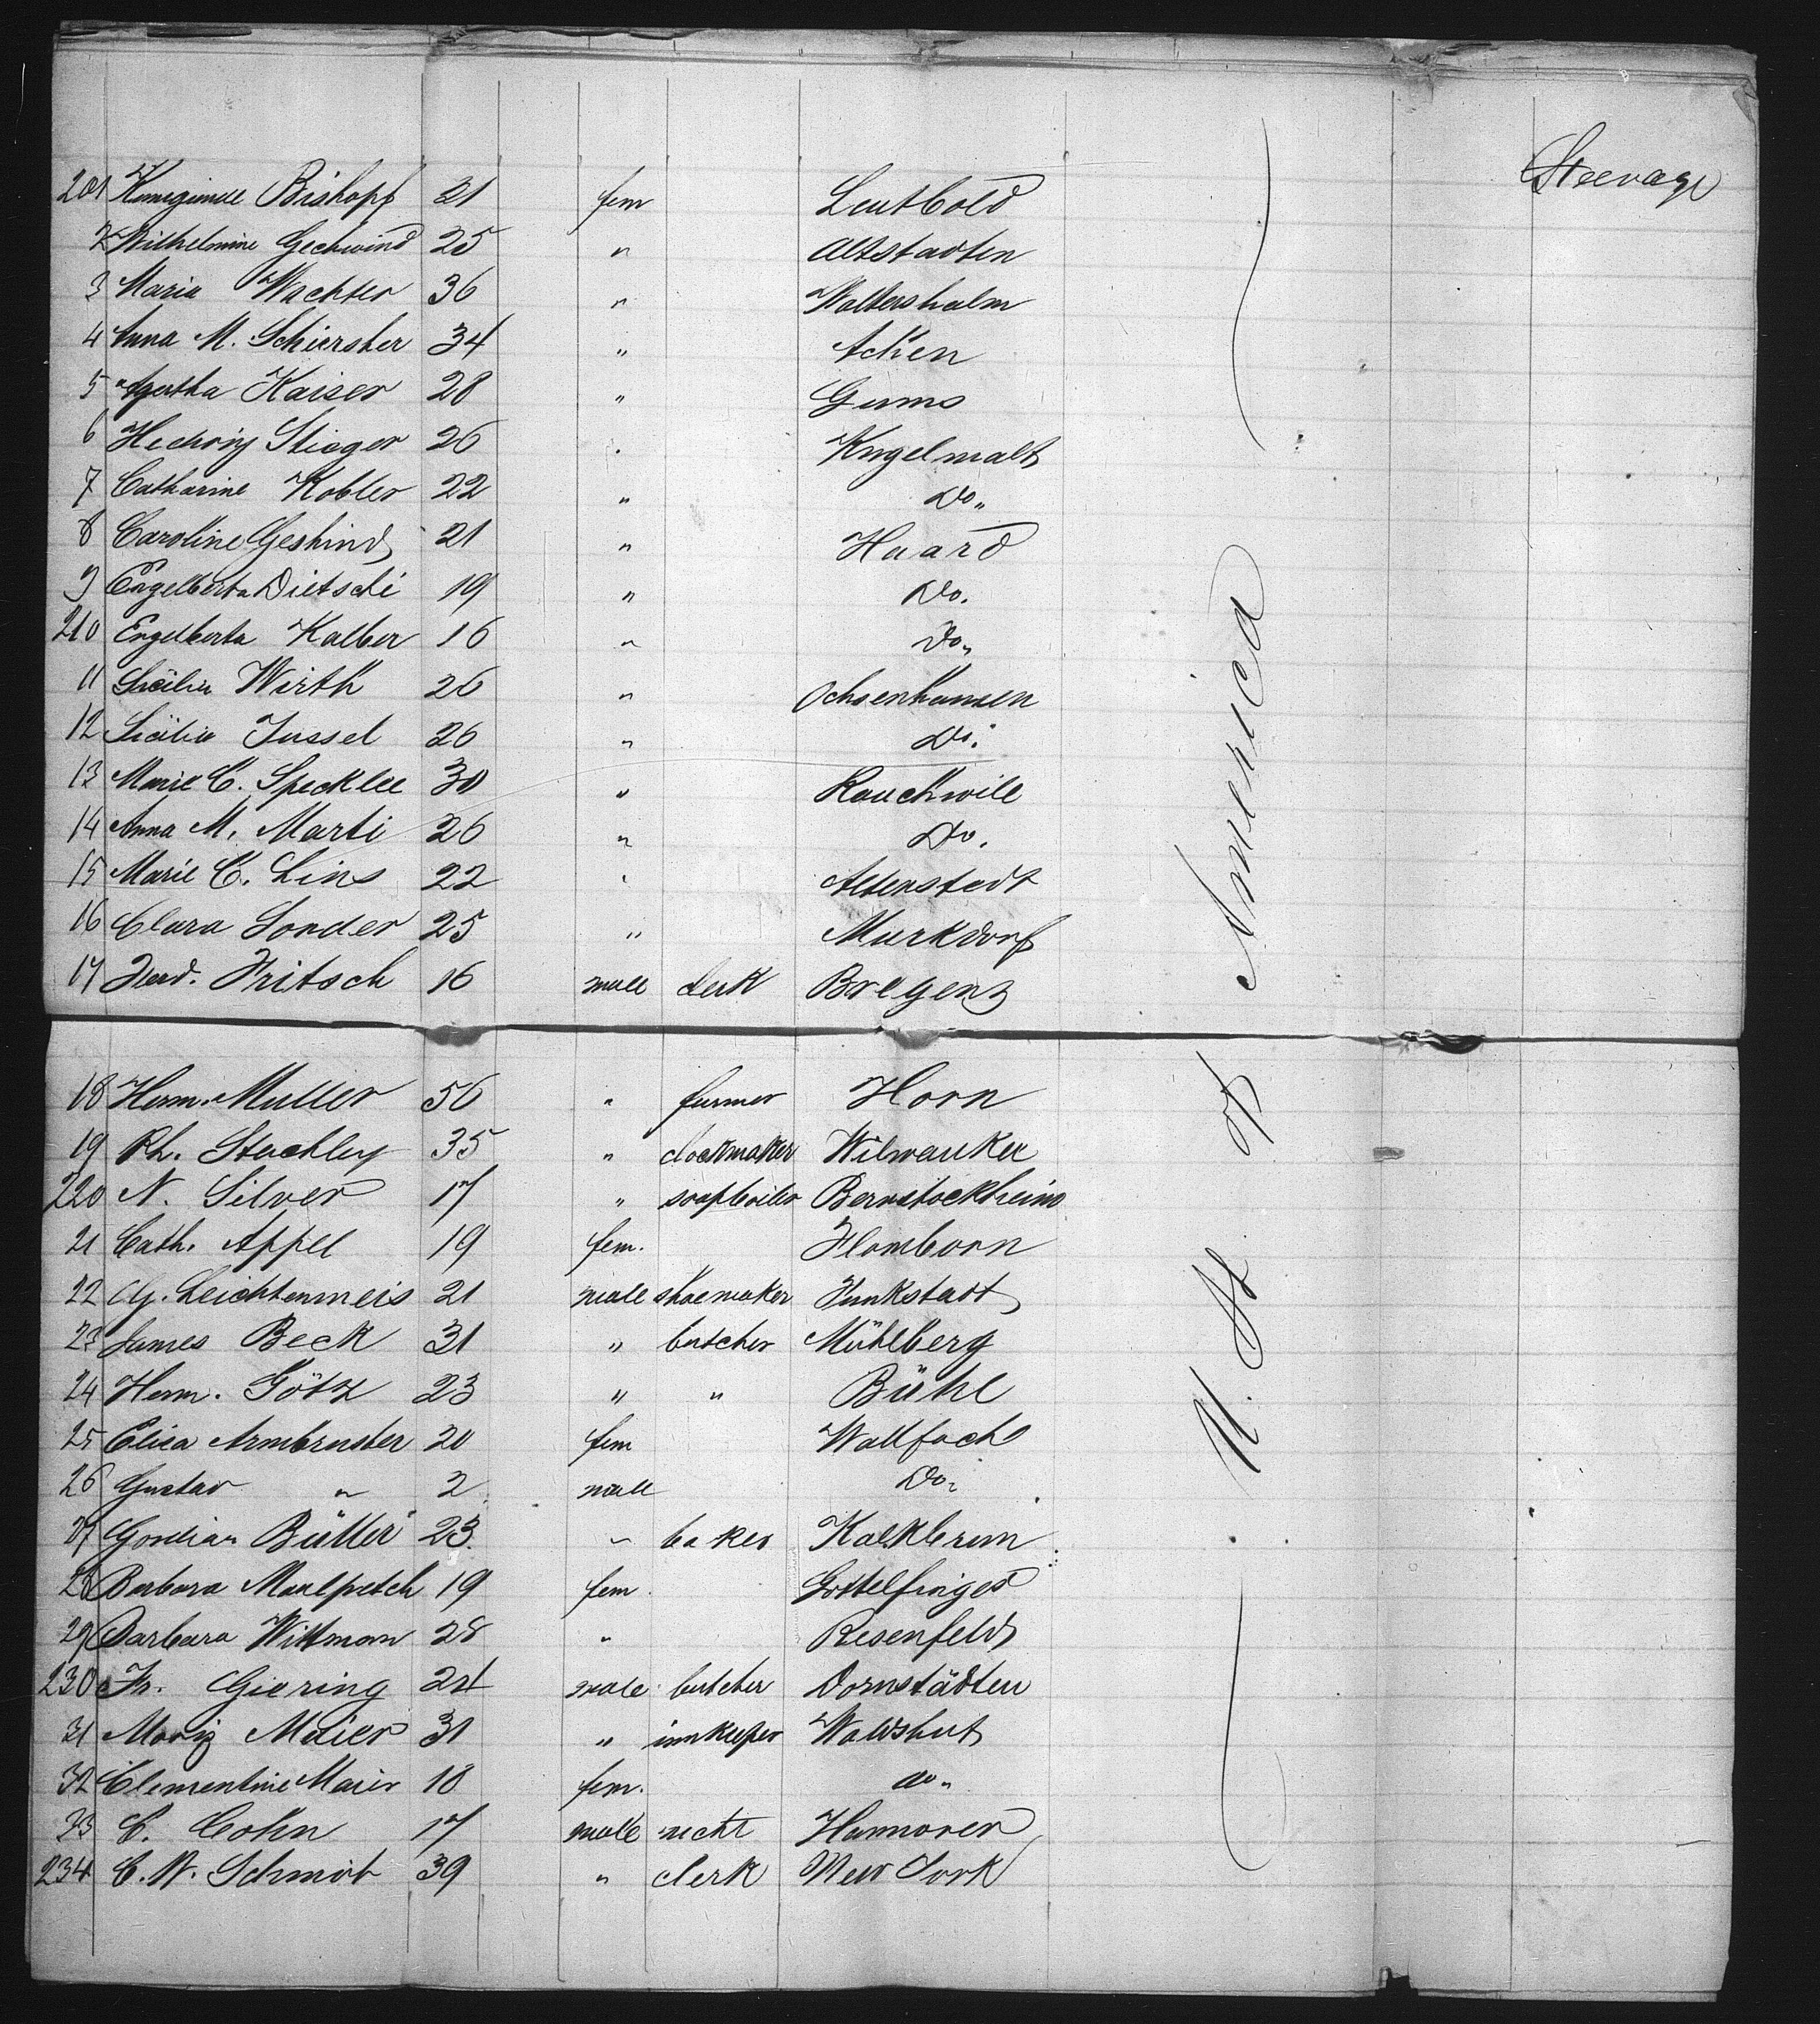 Steerage
201 Kunigunde Bishopf 21 fem Leutbold
2 Wilhelmine Gechwind 25 " Altstadten
3 Maria Wachter 36 " Woltersholm
4 Anna M. Schiersher 34 " Achen
5 Agertha Kaiser 28 " Gums
6 Hedwig Stieger 26 " Kngelmalt
7 Catharine Kobler 22 " Do.
8 Caroline Geshind 21 " Haard
9 Engelberta Dietschi 19 " Do.
210 Engelberta Kalber 16 " Do.
11 Sicilia Wirth 26 " Ochsenhausen
12 Sicilia Jussel 26 " Do.
13 Marie C. Specklee 30 " Rauchwile
14 Anna M. Marti 26 " Do.
15 Marie C. Lins 22 " Altenstedt
16 Clara Sonder 25 " Murkdorf
17 Ferd. Fritsch 16 male clerk Bregenz
18 Herm. Muller 56 " farmer Horn
19 Ph. Stachley 35 " clockmaker Wilwaukee
220 N. Silver 17 " soapboiler Bernstockheim
21 Cath. Appel 19 fem. Flomborn
22 G. Leichtenmeis 21 male shoemaker Funkstadt
23 James Beck 31 " butcher Mühlberg
24 Herm. Götz 23 " " Bühl
25 Elisa Armbruster 20 fem Wallfach
26 Gustav " 2 male Do.
27 Gordian Bütler 23 " baker Kalkbrun
28 Barbara Maulpetch 19 fem Gottelfinger
29 Barbara Wittman 28 " Resenfeld
230 Fr. Giering 24 male butcher Dornstädten
31 Moriz Maier 31 " innkeeper Waldshut
32 Clementine Maier 18 fem. do.
33 C. Cohn 17 male mcht Hannover
234 C. W. Schmidt 39 " clerk New York
U. St. of America